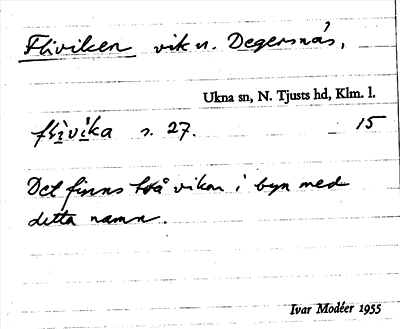 Fliviken vik n. Degersnäs,
Ukna sn, N. Tjusts hd, Klm. l.
flìvi̇̀ka s. 27. 15
Det finns två vikar i byn med
detta namn.
Ivar Modéer 1955